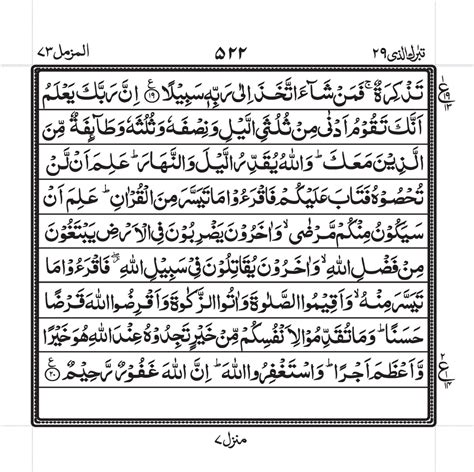 تبٰرك الذی ۲۹ ۵۲۲ المزمل ۷۳
تَذْكِرَةٌ ۚ فَمَنْ شَآءَ اتَّخَذَ اِلٰى رَبِّهٖ سَبِيْلًا ﴿۱۹﴾ اِنَّ رَبَّكَ يَعْلَمُ
اَنَّكَ تَقُوْمُ اَدْنٰى مِنْ ثُلُثَيِ الَّيْلِ وَنِصْفَهٗ وَثُلُثَهٗ وَطَآئِفَةٌ مِّنَ
الَّذِيْنَ مَعَكَ ؕ وَاللّٰهُ يُقَدِّرُ الَّيْلَ وَالنَّهَارَ ؕ عَلِمَ اَنْ لَّنْ
تُحْصُوْهُ فَتَابَ عَلَيْكُمْ فَاقْرَءُوْا مَا تَيَسَّرَ مِنَ الْقُرْاٰنِ ؕ عَلِمَ اَنْ
سَيَكُوْنُ مِنْكُمْ مَّرْضٰى ۙ وَاٰخَرُوْنَ يَضْرِبُوْنَ فِي الْاَرْضِ يَبْتَغُوْنَ
مِنْ فَضْلِ اللّٰهِ ۙ وَاٰخَرُوْنَ يُقَاتِلُوْنَ فِيْ سَبِيْلِ اللّٰهِ ۖ فَاقْرَءُوْا مَا
تَيَسَّرَ مِنْهُ ۙ وَاَقِيْمُوا الصَّلٰوةَ وَاٰتُوا الزَّكٰوةَ وَاَقْرِضُوا اللّٰهَ قَرْضًا
حَسَنًا ؕ وَمَا تُقَدِّمُوْا لِاَنْفُسِكُمْ مِّنْ خَيْرٍ تَجِدُوْهُ عِنْدَ اللّٰهِ هُوَ خَيْرًا
وَّاَعْظَمَ اَجْرًا ؕ وَاسْتَغْفِرُوا اللّٰهَ ؕ اِنَّ اللّٰهَ غَفُوْرٌ رَّحِيْمٌ ﴿۲۰﴾
منزل ۷